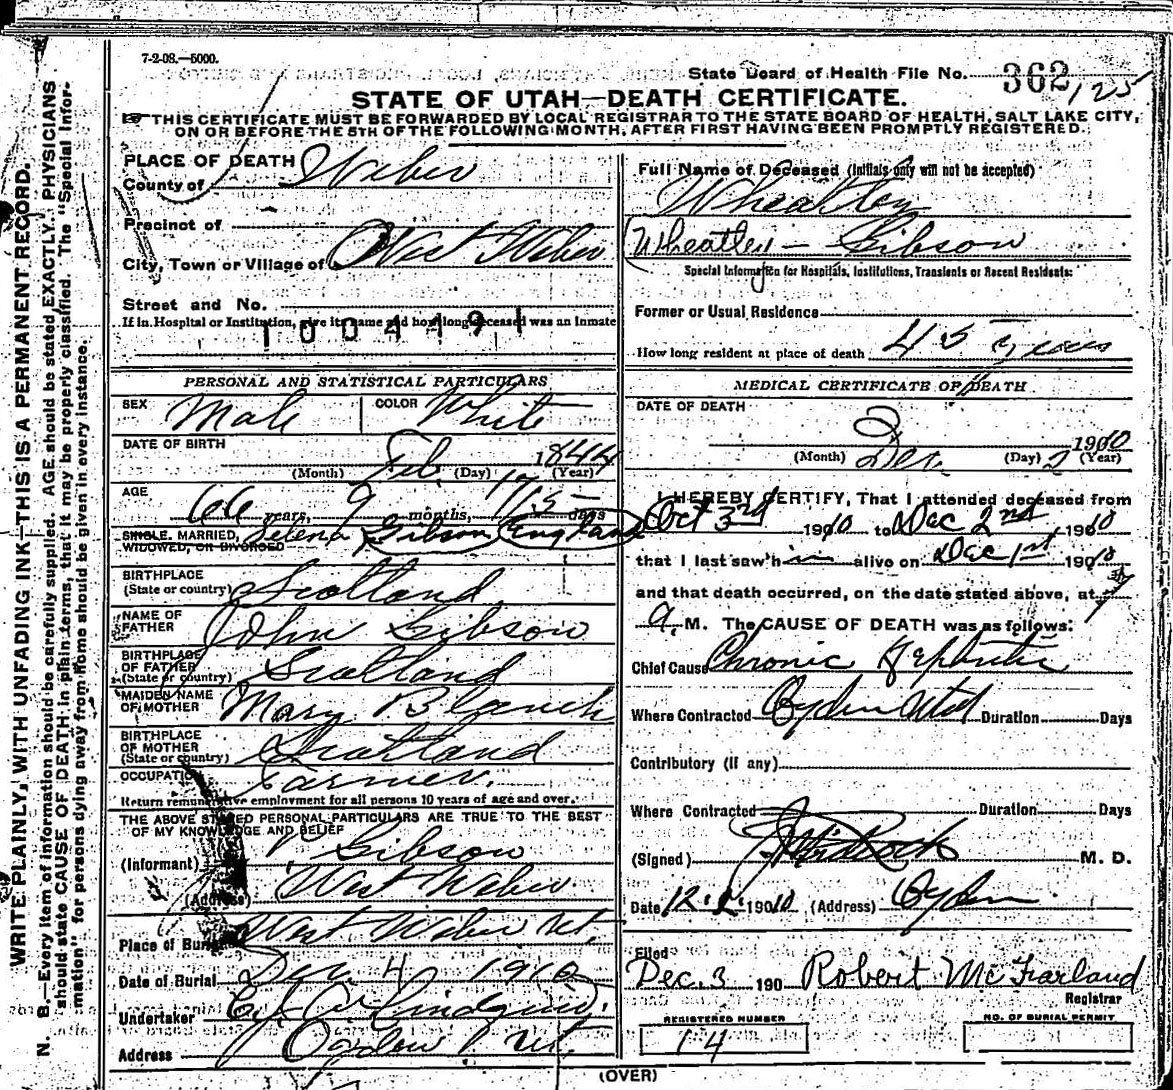 7-2-08.—5000.
State Board of Health File No. 362 125
STATE OF UTAH—DEATH CERTIFICATE.
THIS CERTIFICATE MUST BE FORWARDED BY LOCAL REGISTRAR TO THE STATE BOARD OF HEALTH, SALT LAKE CITY,
ON OR BEFORE THE 5TH OF THE FOLLOWING MONTH, AFTER FIRST HAVING BEEN PROMPTLY REGISTERED.
WRITE PLAINLY, WITH UNFADING INK—THIS IS A PERMANENT RECORD.
N. B.—Every item of information should be carefully supplied. AGE should be stated EXACTLY. PHYSICIANS
should state CAUSE OF DEATH in plain terms, that it may be properly classified. The "Special Infor-
mation" for persons dying away from home should be given in every instance.
PLACE OF DEATH
County of Weber
Precinct of
City, Town or Village of West Weber
Street and No.
If in Hospital or Institution, give its name and how long deceased was an Inmate
1004491
PERSONAL AND STATISTICAL PARTICULARS
SEX Male COLOR White
DATE OF BIRTH
Feb 17 1844
(Month) (Day) (Year)
AGE
66 years, 9 months, 15 days
SINGLE, MARRIED, WIDOWED, OR DIVORCED Selena Gibson (England)
BIRTHPLACE
(State or country) Scotland
NAME OF FATHER John Gibson
BIRTHPLACE OF FATHER (State or country) Scotland
MAIDEN NAME OF MOTHER Mary Blanch
BIRTHPLACE OF MOTHER (State or country) Scotland
OCCUPATION Farmer.
Return remunerative employment for all persons 10 years of age and over.
THE ABOVE STATED PERSONAL PARTICULARS ARE TRUE TO THE BEST
OF MY KNOWLEDGE AND BELIEF
(Informant) Gibson
(Address) West Weber
Place of Burial West Weber Ut.
Date of Burial Dec 4 1910
Undertaker Lindquist
Address Ogden Ut.
Full Name of Deceased (Initials only will not be accepted)
Wheatley
(Wheatley — Gibson
Special Information for Hospitals, Institutions, Transients or Recent Residents:
Former or Usual Residence
How long resident at place of death 45 Years
MEDICAL CERTIFICATE OF DEATH
DATE OF DEATH
Dec 2 1910
(Month) (Day) (Year)
I HEREBY CERTIFY, That I attended deceased from
Oct 3rd 1910 to Dec 2nd 1910
that I last saw him alive on Dec 1st 1910
and that death occurred, on the date stated above, at
A. M. The CAUSE OF DEATH was as follows:
Chief Cause Chronic Nephritis
Where Contracted Ogden Utah Duration Days
Contributory (If any)
Where Contracted Duration Days
(Signed) M. D.
Date 12. 1910 (Address) Ogden
Filed
Dec. 3 190 Robert McFarland
Registrar
REGISTERED NUMBER
14
NO. OF BURIAL PERMIT
(OVER)